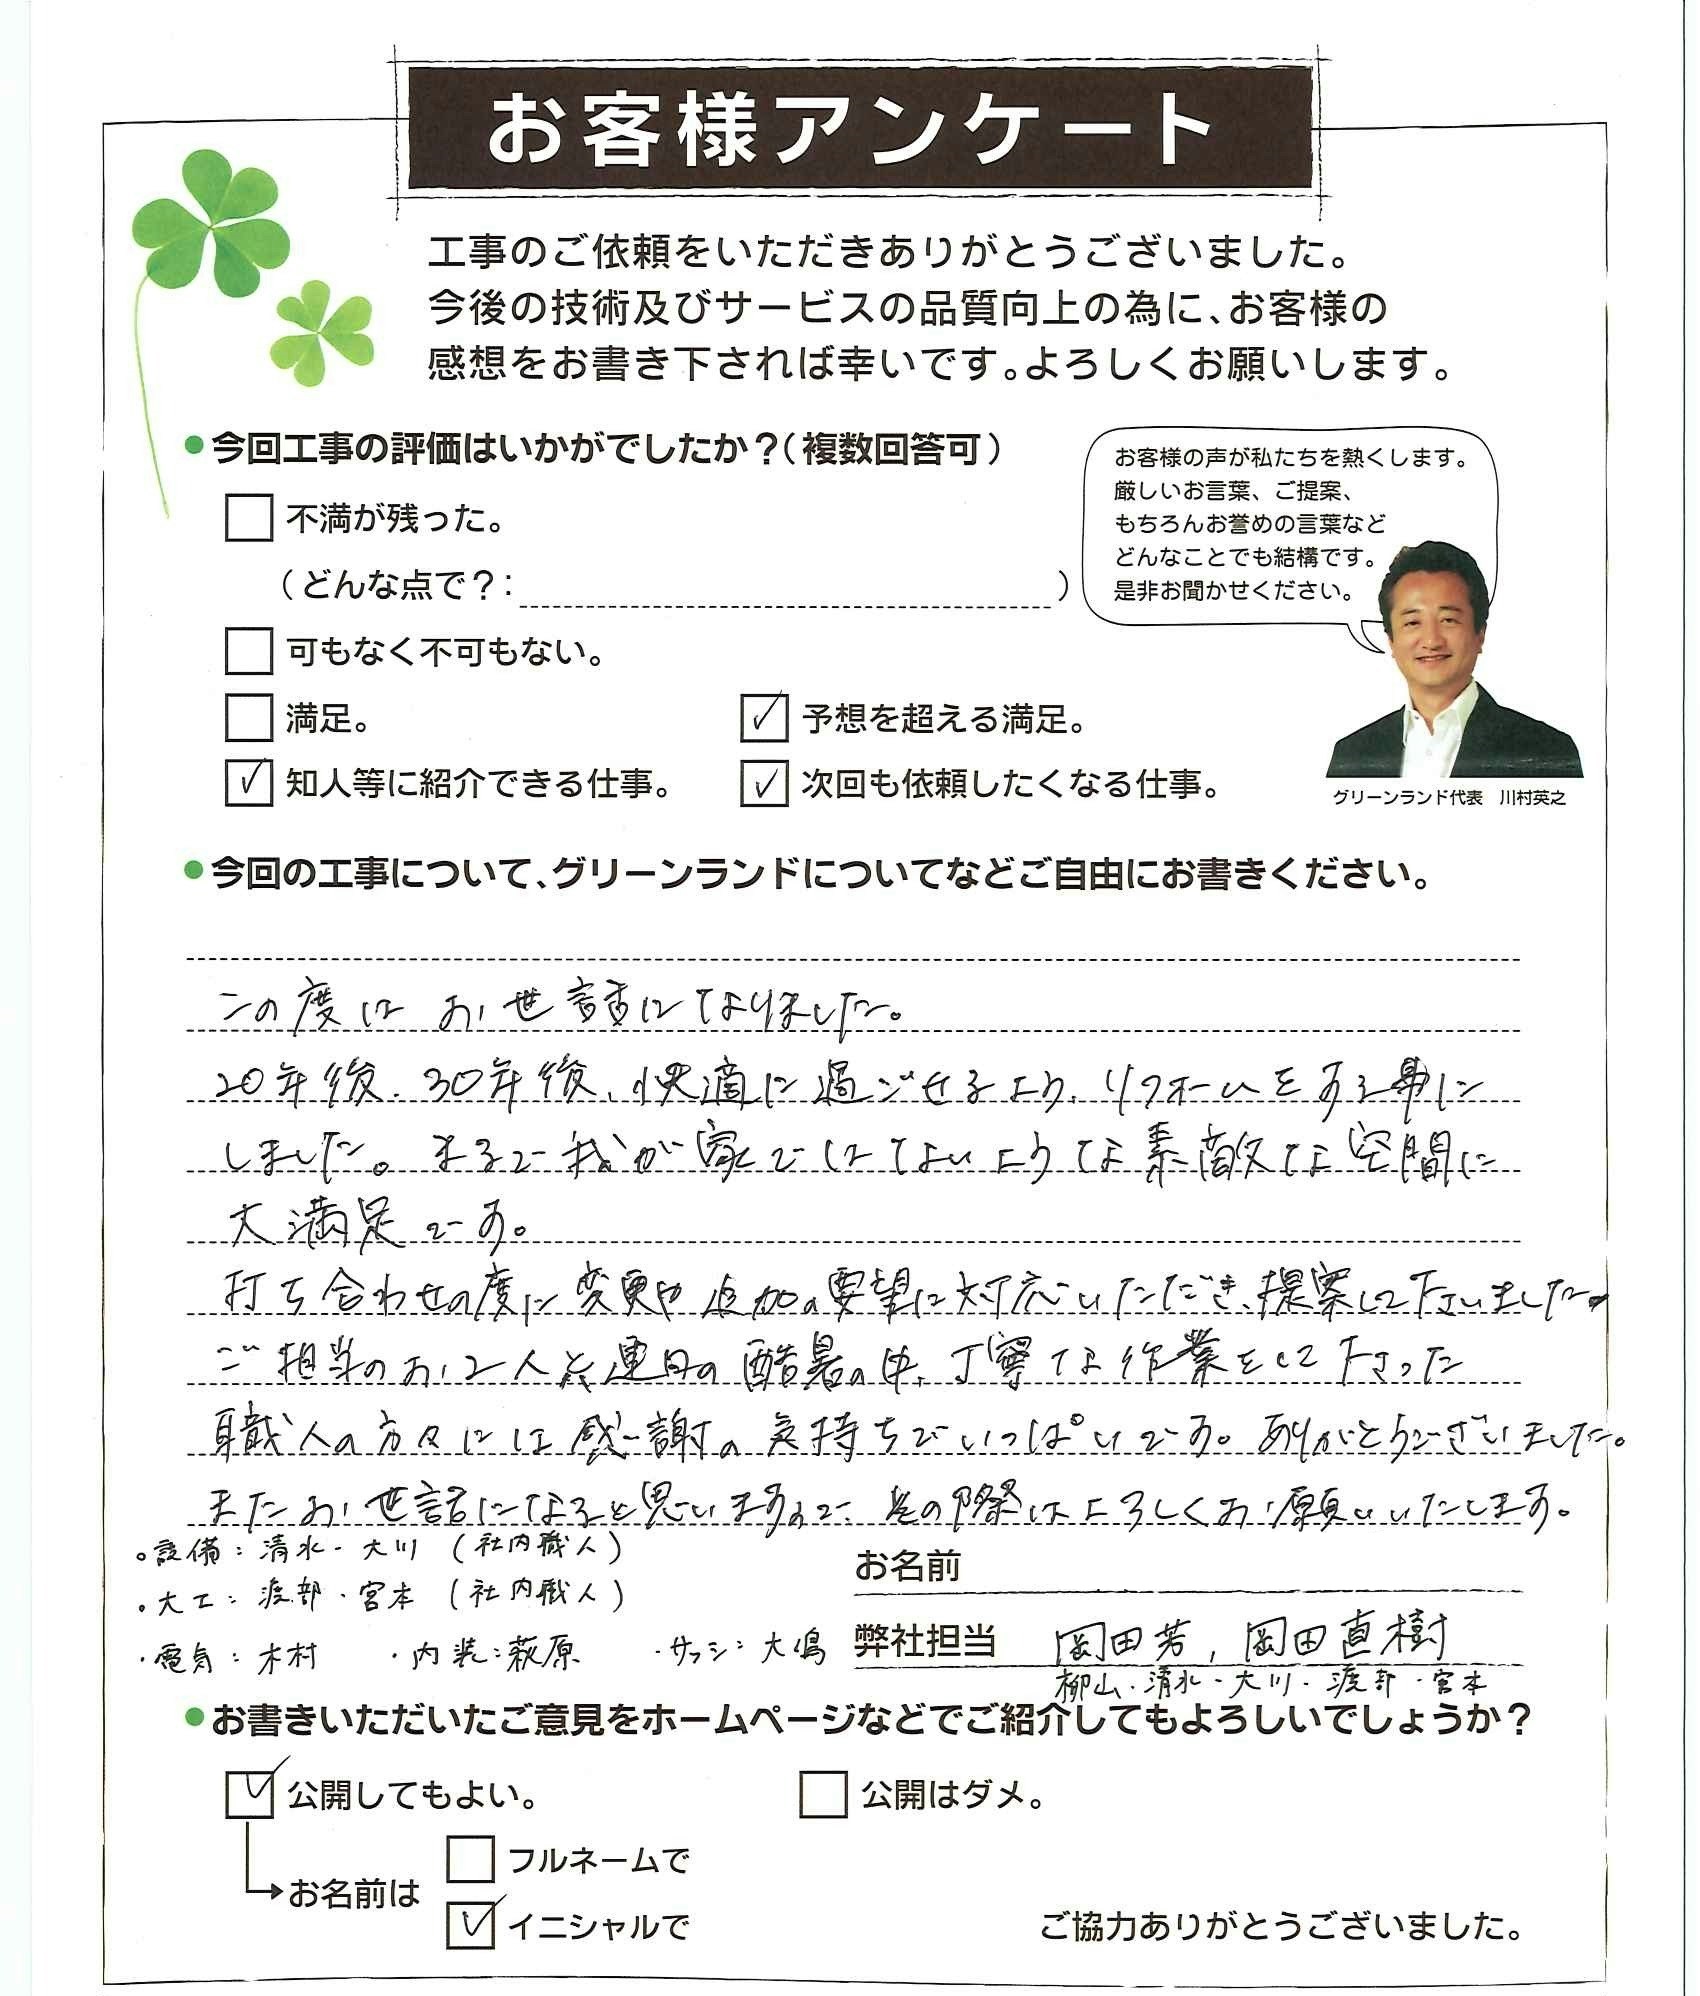 お客様アンケート
工事のご依頼をいただきありがとうございました。
今後の技術及びサービスの品質向上の為に、お客様の
感想をお書き下されば幸いです。よろしくお願いします。
●今回工事の評価はいかがでしたか？（複数回答可）
不満が残った。
（どんな点で？：　）
可もなく不可もない。
満足。
予想を超える満足。
知人等に紹介できる仕事。
次回も依頼したくなる仕事。
お客様の声が私たちを熱くします。
厳しいお言葉、ご提案、
もちろんお誉めの言葉など
どんなことでも結構です。
是非お聞かせください。
グリーンランド代表　川村英之
●今回の工事について、グリーンランドについてなどご自由にお書きください。
この度は お世話になりました。
20年後、30年後、快適に過ごせるよう、リフォームをする事に
しました。まるで我が家ではないような素敵な空間に
大満足です。
打ち合わせの度に変更や追加の要望に対応いただき、提案して下さいました
ご担当のお二人と連日の酷暑の中、丁寧な作業をして下さった
職人の方々には感謝の気持ちでいっぱいです。ありがとうございました。
またお世話になると思いますので、その際はよろしくお願いいたします。
。設備：清水・大川（社内職人）
・大工：渡部・宮本（社内職人）
・電気：木村　・内装：萩原　・サッシ：大嶋
お名前
弊社担当　岡田芳，岡田直樹
柳山・清水・大川・渡部・宮本
●お書きいただいたご意見をホームページなどでご紹介してもよろしいでしょうか？
公開してもよい。
公開はダメ。
お名前は
フルネームで
イニシャルで
ご協力ありがとうございました。